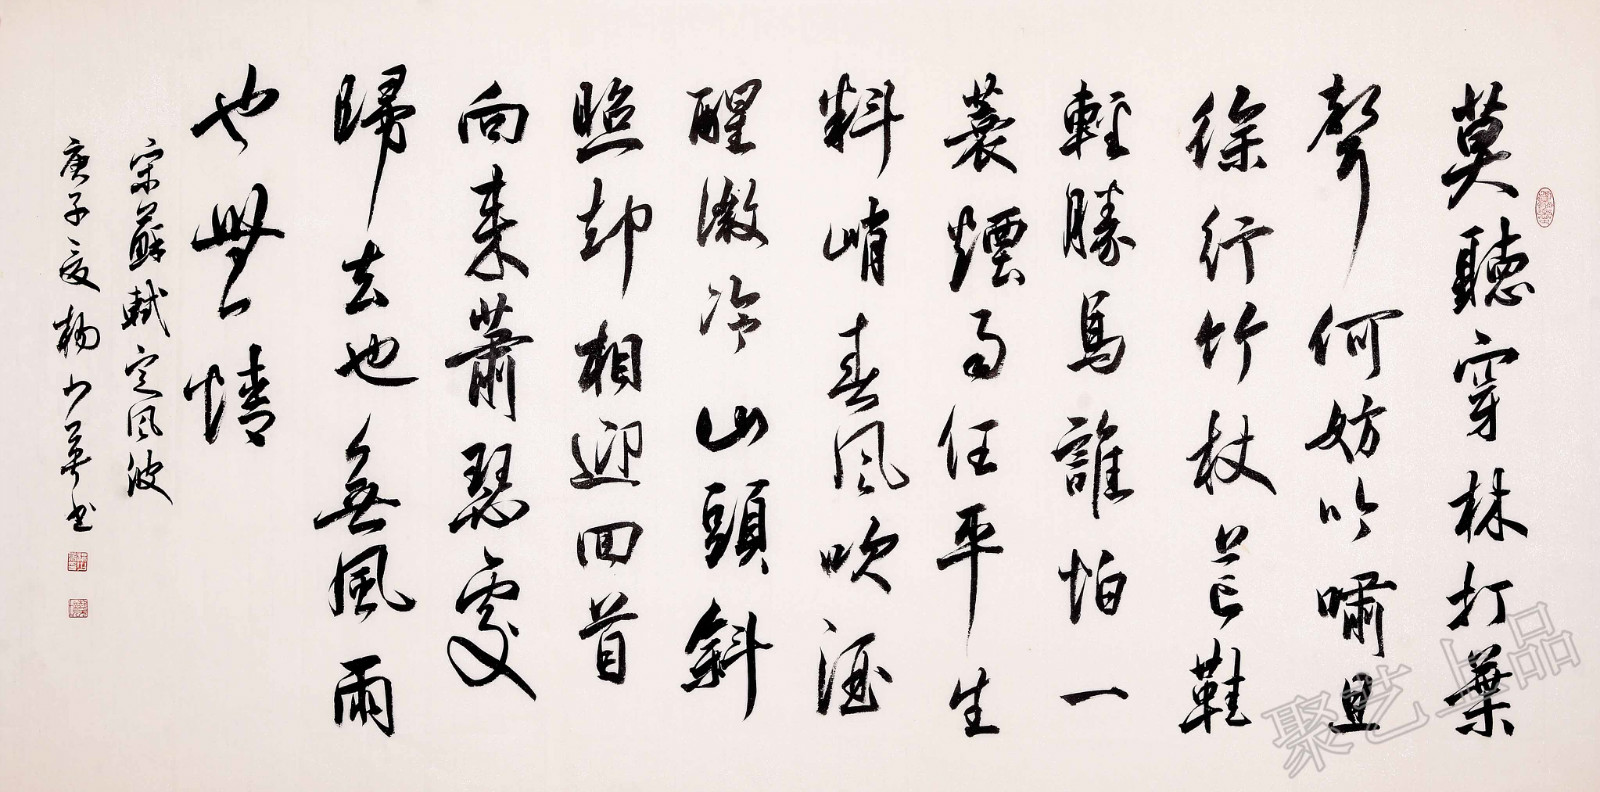 莫聽穿林打葉
聲何妨吟嘯且
徐行竹杖芒鞋
輕勝馬誰怕一
蓑煙雨任平生
料峭春風吹酒
醒微冷山頭斜
照却相迎回首
向來蕭瑟處
歸去也無風雨
也無情
宋蘇軾定風波
庚子夏楊少英书
聚艺上品